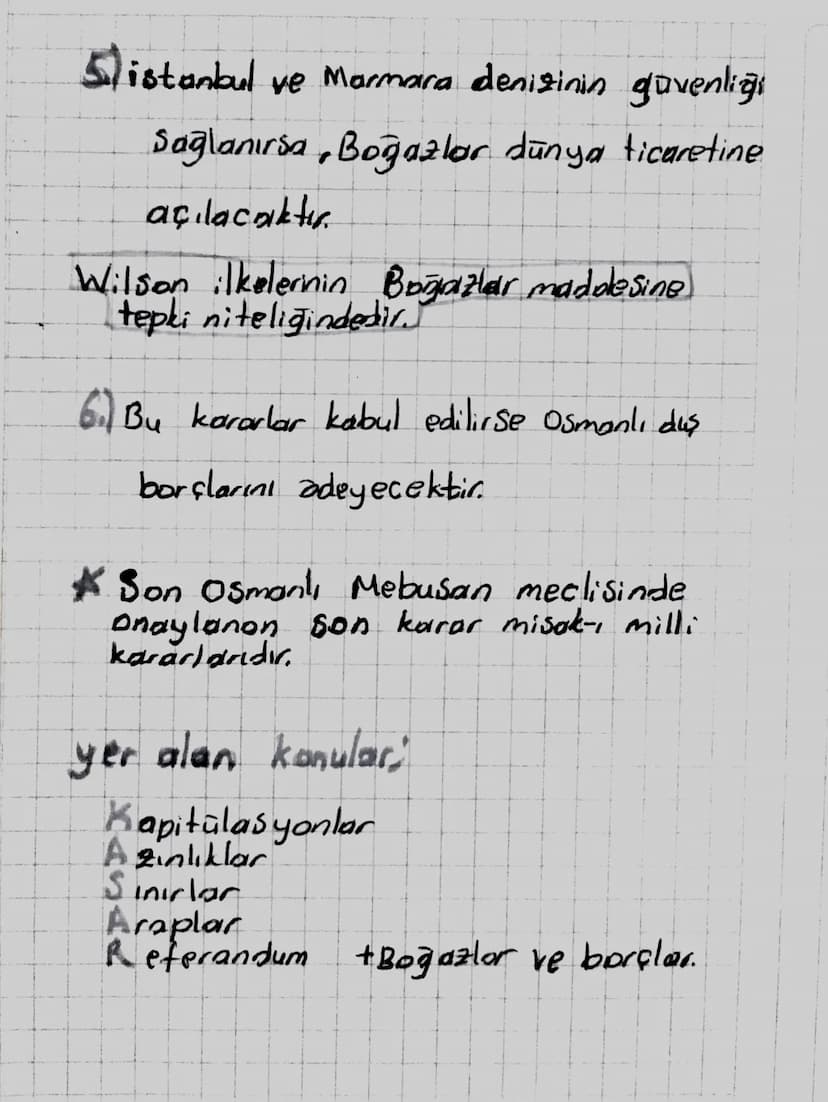 5.) istanbul ve Marmara denizinin güvenliği
Sağlanırsa, Boğazlar dünya ticaretine
açılacaktır.
Wilson ilkelerinin Boğazlar maddesine
tepki niteliğindedir.
6.) Bu kararlar kabul edilirse Osmanlı dış
borçlarını ödeyecektir.
* Son Osmanlı Mebusan meclisinde
Onaylanan son karar misak-ı milli
kararlarıdır.
yer alan konular;
Kapitülasyonlar
Azınlıklar
Sınırlar
Araplar
Referandum +Boğazlar ve borçlar.